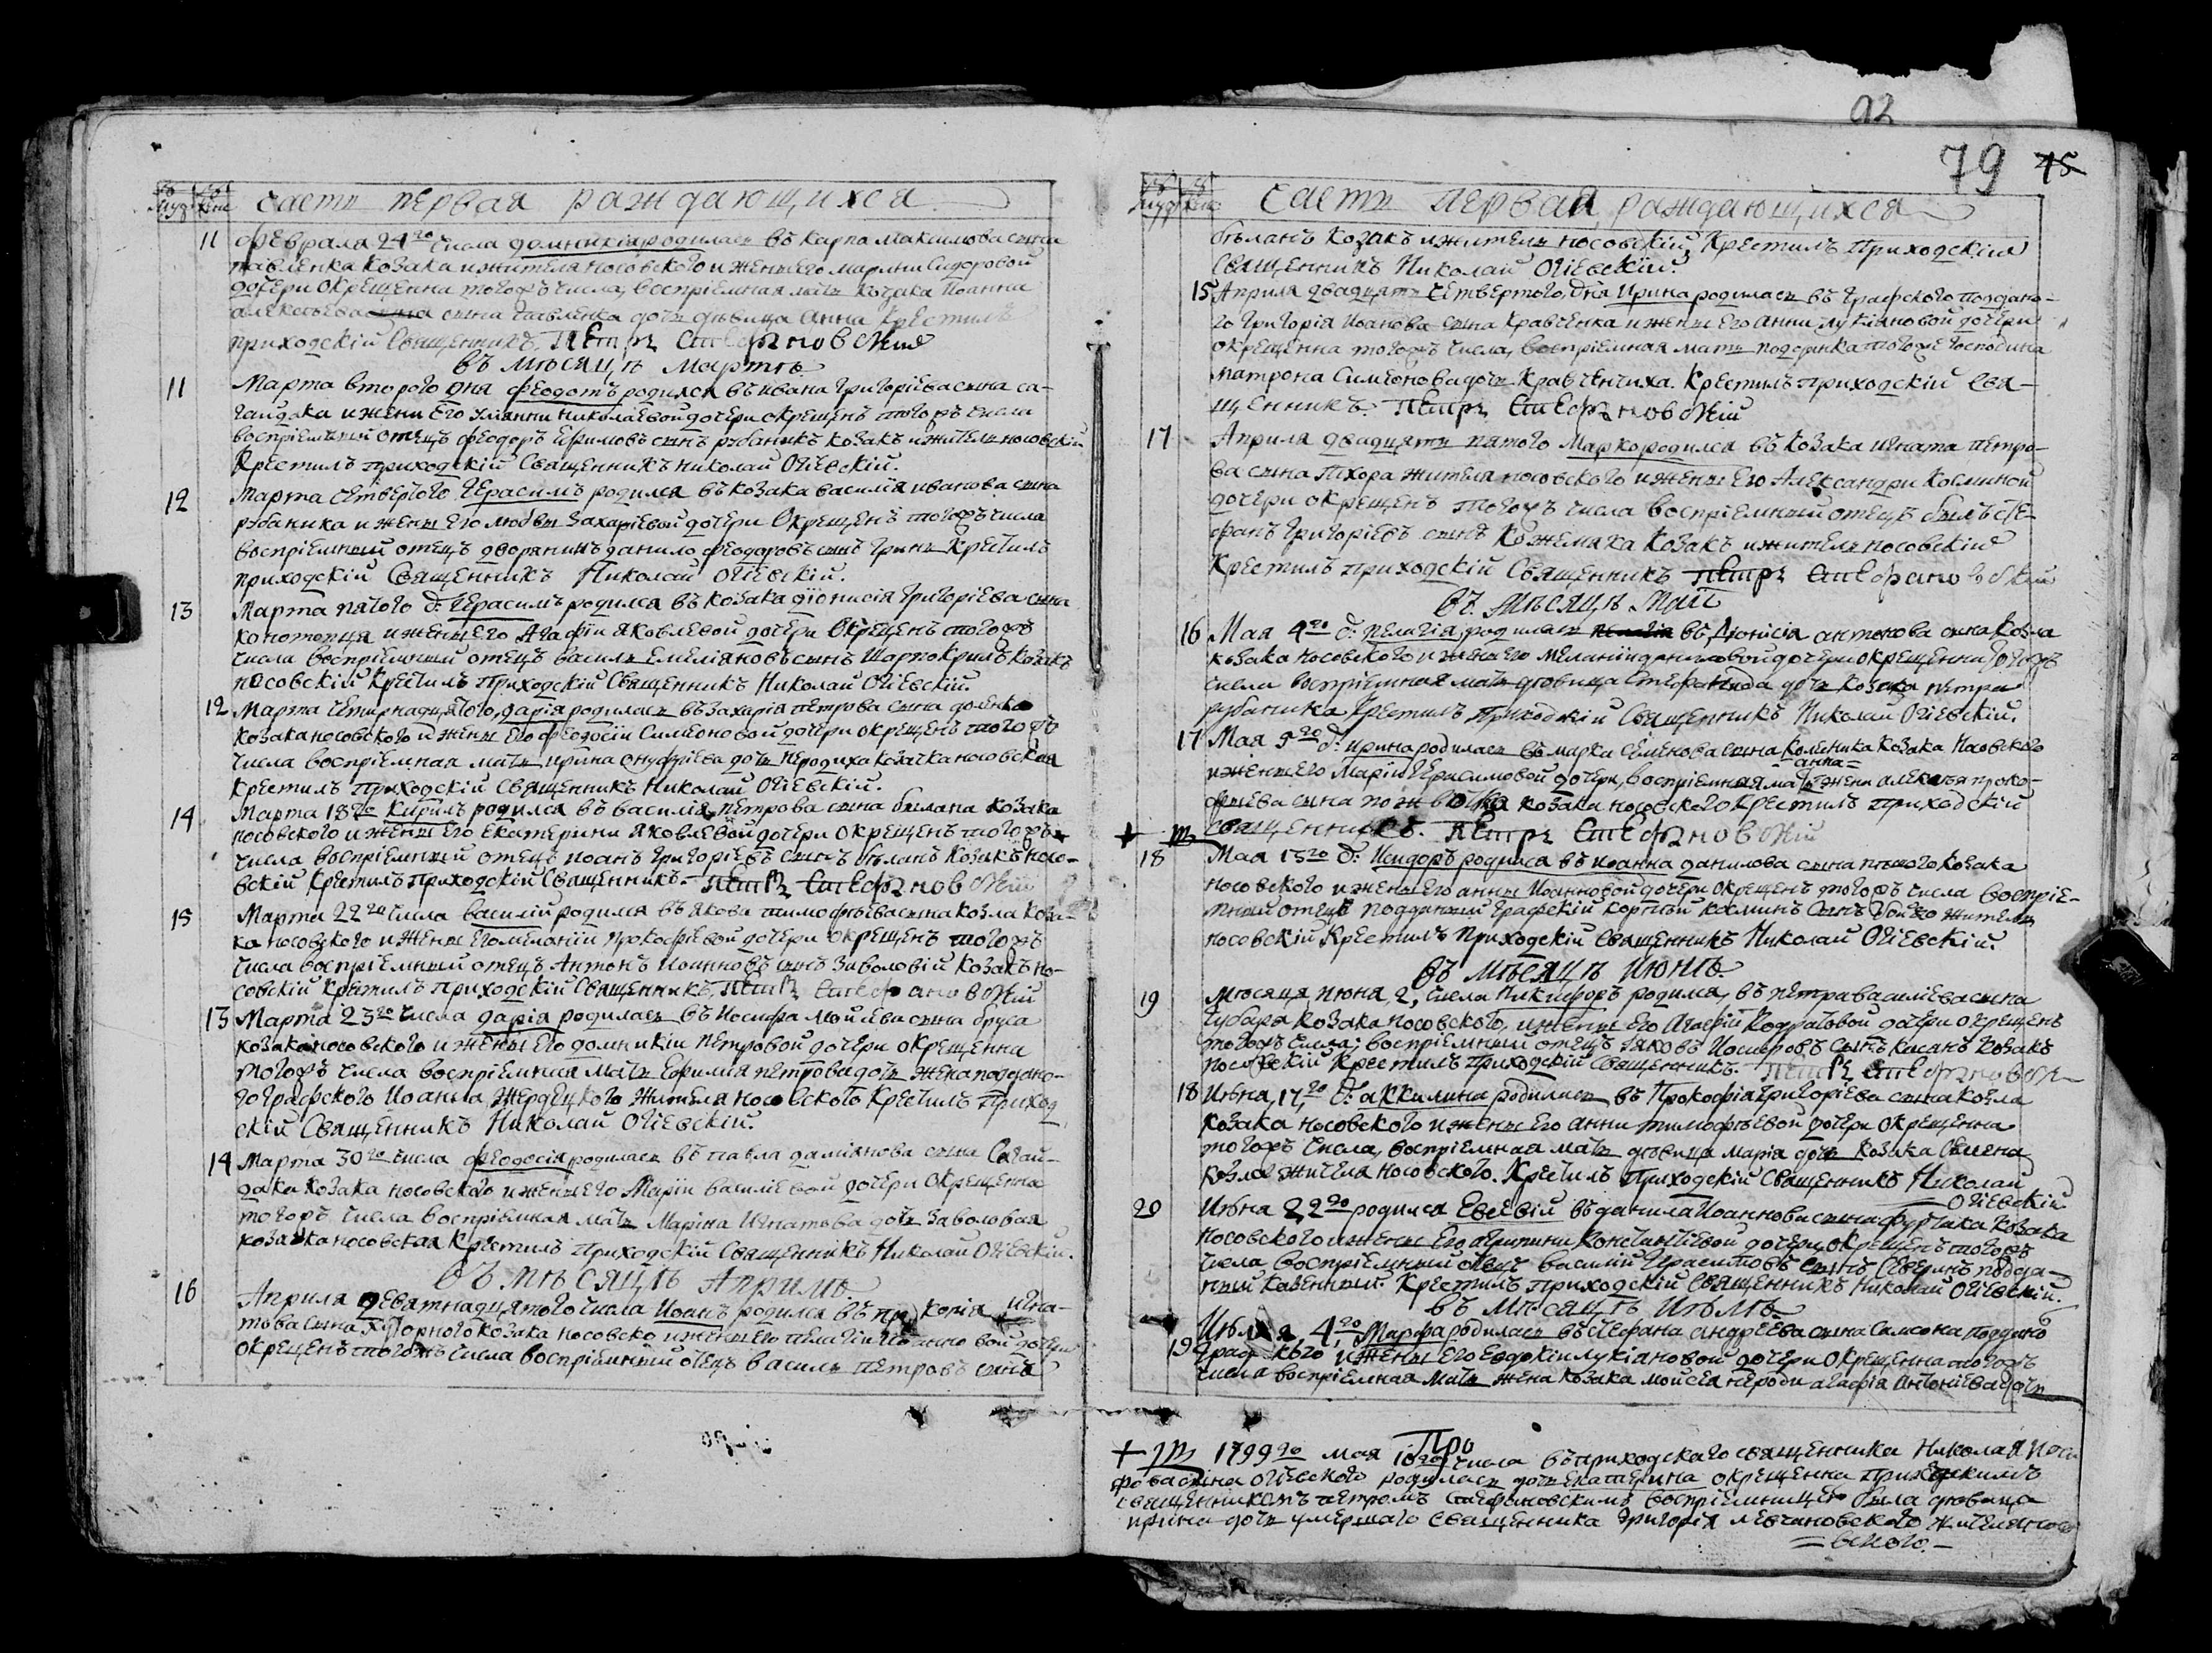 часть первая раждающихся
11 февраля 24го числа домникія родилась въ Карпа Максимова сына
павленка козака и жителя носовского и жены его Марины Сидоровой
дочери окрещенна тогожъ числа, воспріемная мать козака Иоанна
алексѣева сына павленка дочь дѣвица Анна Крестилъ
приходскій Священникъ Петръ Стефановскій
въ мѣсяцѣ Мартѣ
11 Марта второго дня феодотъ родился въ ивана григоріева сына са-
гайдака и жени его Уліянни николаевой дочери окрещенъ тогожъ числа
воспріемный отецъ феодоръ Ефимовъ сынъ рубаникъ козакъ и житель носовскій
Крестилъ приходскій Священникъ Николай Огіевскій.
12 Марта четвертого Герасимъ родился въ козака василія иванова сына
рубаника и жены его любвы Захаріевой дочери Окрещенъ тогожъ числа
воспріемный отецъ дворянинъ данило феодоровъ сынъ Гринь Крестилъ
приходскій Священникъ Николай Огіевскій.
13 Марта пятого д: Герасимъ родился въ козака діонисія Григоріева сына
конотопця и жены его Агафіи Яковлевой дочери Окрещенъ тогожъ
числа воспріемный отецъ василь Емеліяновъ сынъ Шарпокрилъ козакъ
носовскій Крестилъ приходскій Священникъ Николай Огіевскій.
12 Марта четирнадцятого, дарія родилась въ Захарія петрова сына доенка
козака носовского и жены его феодосіи Симеоновой дочери окрещенъ тогожъ
числа воспріемная мать ирина онуфріева дочь неродиха козачка носовская
Крестилъ приходскій Священникъ Николай Огіевскій.
14 Марта 18го Кирилъ родился въ василія петрова сына билана козака
носовского и жены его екатерини Яковлевой дочери окрещенъ тогожъ
числа воспріемный отецъ иоанъ григоріевъ сынъ биланъ козакъ носо-
вскій крестилъ приходскій Священникъ. Петръ Стефановскій
15 Марта 22го числа василій родился въ Якова тимофѣева сына козла коза-
ка носовского и жены его меланіи прокофіевой дочери окрещенъ тогожъ
числа воспріемный отецъ Антонъ Иоанновъ сынъ Заволовій козакъ но-
совскій крестилъ приходскій Священникъ. Петръ Стефановскій
13 Марта 23го числа дарія родилась въ Иосифа Моисѣева сына бруса
козака носовского и жены его домникіи петровой дочери окрещенна
тогожъ числа воспріемная мать Ефимія петрова дочь жена поддано-
го графского Иоанна Жердецкого жителя носовского Крестилъ приход
скій Священникъ Николай Огіевскій.
14 Марта 30го числа феодосія родилась въ павла даміянова сына Сагай-
дака козака носовского и жены его Маріи василіевой дочери окрещенна
тогожъ числа воспріемная мать Марина Игнатова дочь Заволовая
козачка носовская Крестилъ приходскій Священникъ Николай Огіевскій.
въ мѣсяцѣ Априлѣ
16 Априля девятнадцятого числа Иоанъ родился въ прокопія игна-
това сына хуторного козака носовско и жены его пелагіи Иоанновой дочери
окрещенъ тогожъ числа воспріемный отецъ василь петровъ сынъ
92
79 45
часть первая раждающихся
биланъ козакъ и житель носовскій, Крестилъ приходскій
Священникъ Николай Огіевскій.
15 Априля двадцять четвертого, дня Ирина родилась въ графского поддано-
го Григорія Иоанова сына Кравченка и жены его Анни Лукіяновой дочери
окрещенна тогожъ числа, воспріемная мать подданка тогоже господина
матрона Симеонова дочь Кравченчиха. Крестилъ приходскій свя-
щенникъ. Петръ Стефановскій
17 Априля двадцять пятого Марко родился въ козака игната петро-
ва сына Тхора жителя носовского и жены его Александри Косминой
дочери окрещенъ тогожъ числа воспріемный отецъ былъ сте-
фанъ григоріевъ сынъ Кожемяка козакъ и житель носовскій
Крестилъ приходскій Священникъ Петръ Стефановскій
въ мѣсяцѣ Маіѣ
16 Мая 4го д: пелагія родилась въ Діонисія антонова сына Козла
козака носовского и жены его меланіи даниловой дочери окрещенна тогожъ
числа воспріемная мать дѣвица Стефанида дочь козака петра
рубаника Крестилъ приходскій Священникъ Николай Огіевскій.
17 Мая 5го д: ирина родилась въ марка Семенова сына Коленика козака Носовского
=анна=
и жены его Маріи Герасимовой дочери, воспріемная мать жена алексѣя проко-
фіева сына козака носовского крестилъ приходскій
священникъ. Петръ Стефановскій
18 Мая 15го д: Исидоръ родился въ иоанна данилова сына козака
носовского и жены его анны Иоанновой дочери окрещенъ тогожъ числа воспріе-
мный отецъ подданый графскій корній косминъ сынъ бойко житель
носовскій Крестилъ приходскій Священникъ Николай Огіевскій.
въ мѣсяцѣ июнѣ
19 Мѣсяця июня, 2, числа Никифоръ родился, въ петра василіева сына
Чубаря козака носовского, и жены его Агафіи Кодратовой дочери окрещенъ
тогожъ числа, воспріемный отецъ Яковъ Иосифовъ сынъ Касянъ козакъ
носовскій Крестилъ приходскій Священникъ. Петръ Стефановск
18 Июня, 17го д: аккилина родилась въ Прокофія григоріева сына козла
козака носовского и жены его анни тимофѣевой дочери окрещенна
тогожъ числа, воспріемная мать дѣвица Марія дочь козака Семена
козла жителя носовского. Крестилъ приходскій Священникъ Николай
Огіевскій
20 Июня 22го родился Евсевій въ данила Иоаннова сына фурсака козака
носовского и жены его агрипини Константіевой дочери окрещенъ тогожъ
числа воспріемный отецъ василій герасимовъ сынъ Северинъ подда-
ный казенный. Крестилъ приходскій Священникъ Николай Огіевскій.
въ мѣсяцѣ июлѣ
19 Июля, 4го Марфа родилась въ Стефана андреева сына Самсона поддано
графского и жены его Евдокіи лукіановой дочери окрещенна тогожъ
числа воспріемная мать жена козака моисея нероди агафія Антоніева дочь
Про
+ 1799го мая 10го числа въ приходскаго священника Николая иоси
фова сына огіевского родилась дочь екатерина окрещенна приходскимъ
священникомъ петромъ стефановскимъ воспріемницею была дѣвица
ирина дочь умершаго священника григорія левчановского жителя носо
=вского.=